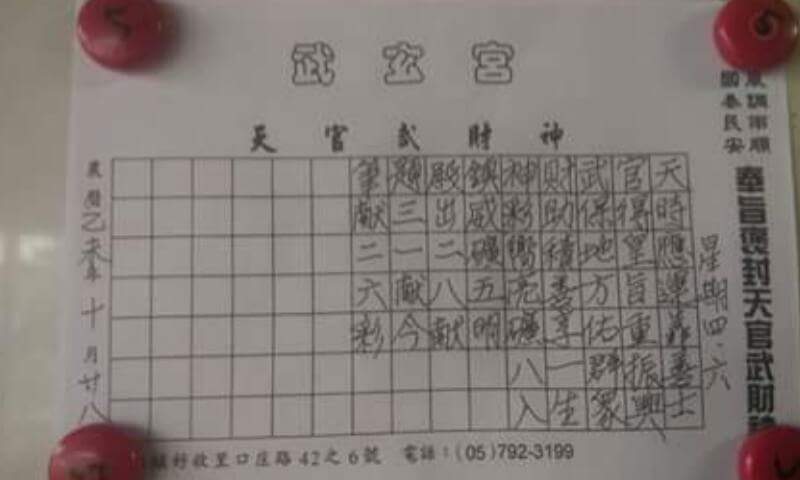 武玄宮
天官武財神
風調雨順
國泰民安
奉旨褒封天官武財神
星期四、六
天時應運善士
官得皇旨重振興
武保地方佑群眾
財助積善享一生
神彩嚮亮礦八入
鎮威礦五明
殿出二八献
題三一献今
筆献二六彩
農曆乙未年十月廿八
鎮好收里口庄路42之6號 電話：(05)792-3199